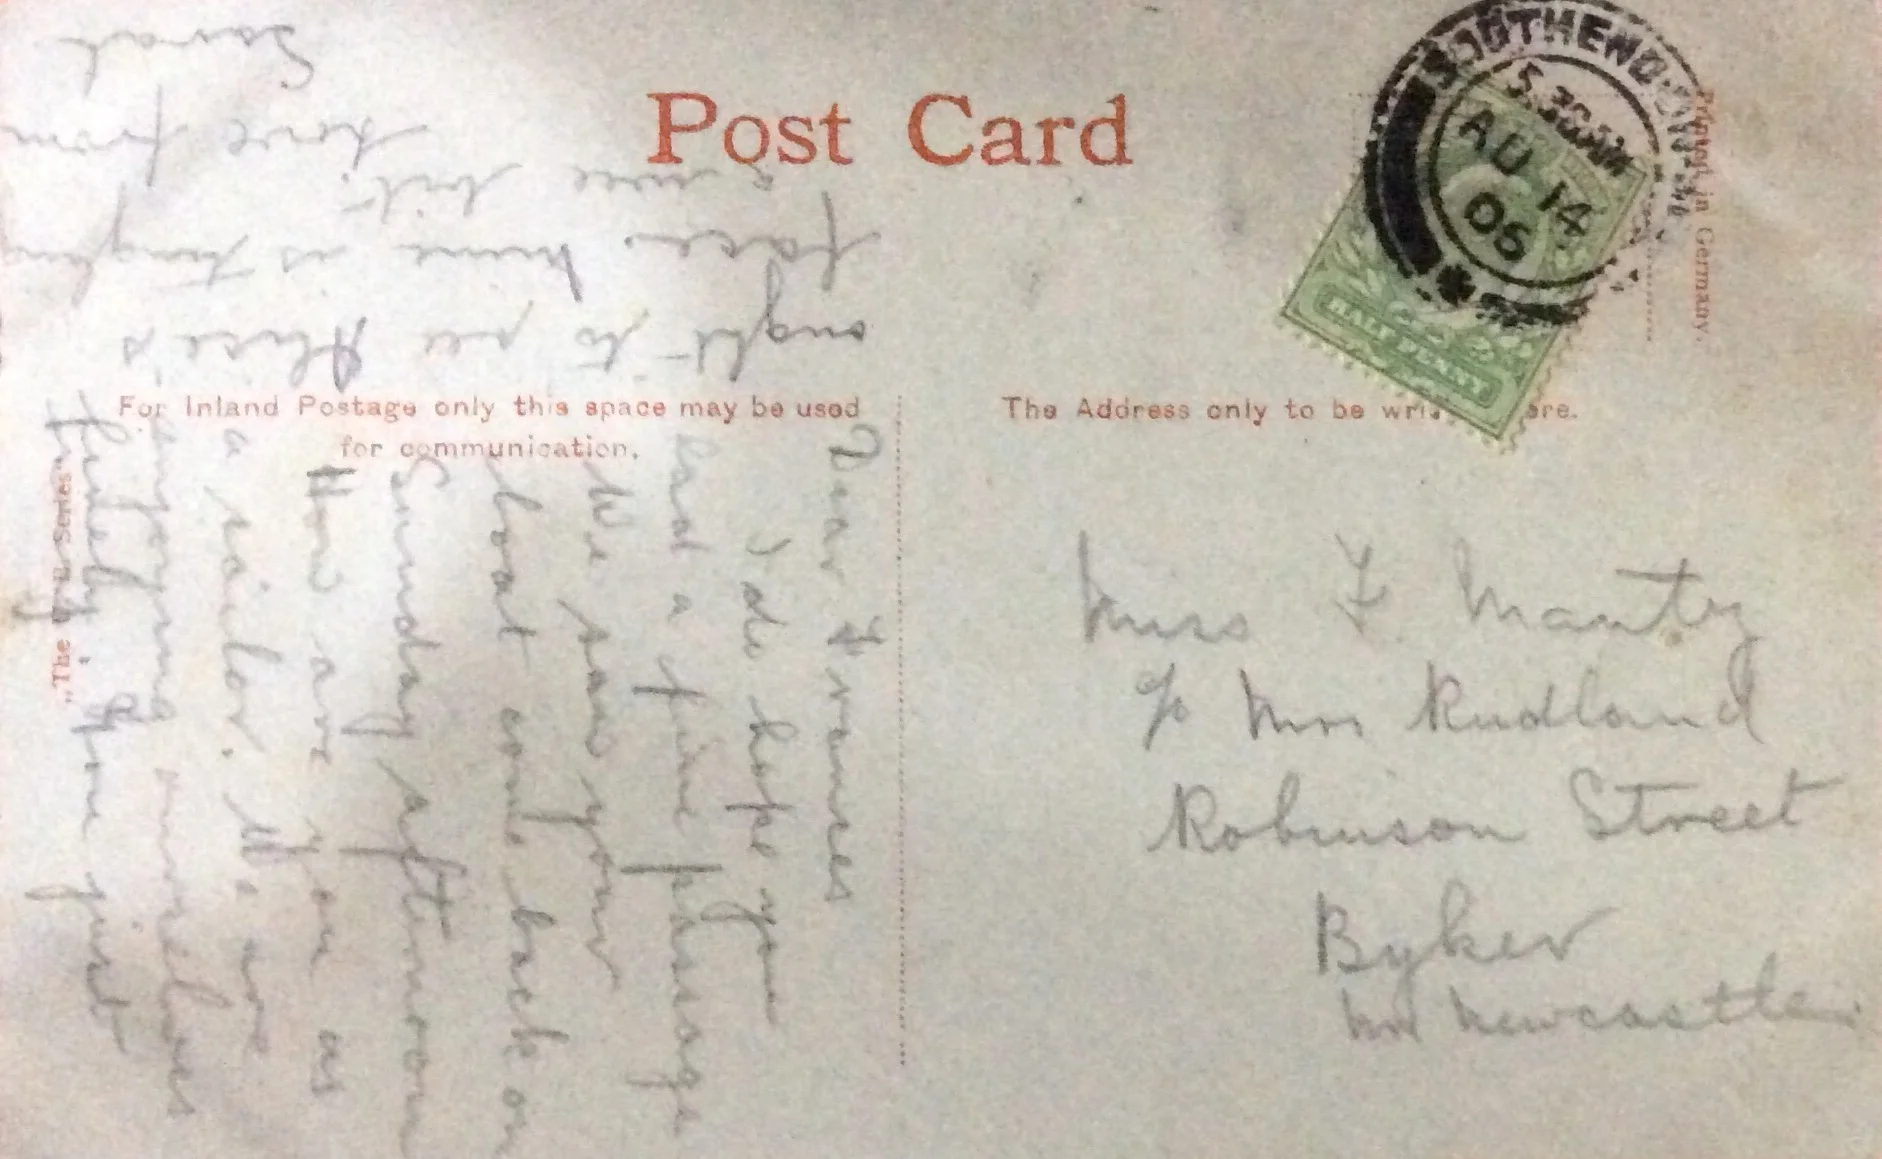 Post Card
SOUTHEND-ON-
5.30AM
AU 14
05
HALF PENNY
Printed in Germany.
For Inland Postage only this space may be used
for communication.
The Address only to be
„The Series“
Miss F. Manty
c/o Mrs Rudland
Robinson Street
Byker
Nr Newcastle
Dear Frances
I do hope you
had a fine passage
We saw your
boat come back on
Sunday afternoon
How are you as
a sailor. We are
enjoying ourselves
finely. You just
ought to see Alice's
face. mine is tingling
a wee bit.
Love from
Sarah